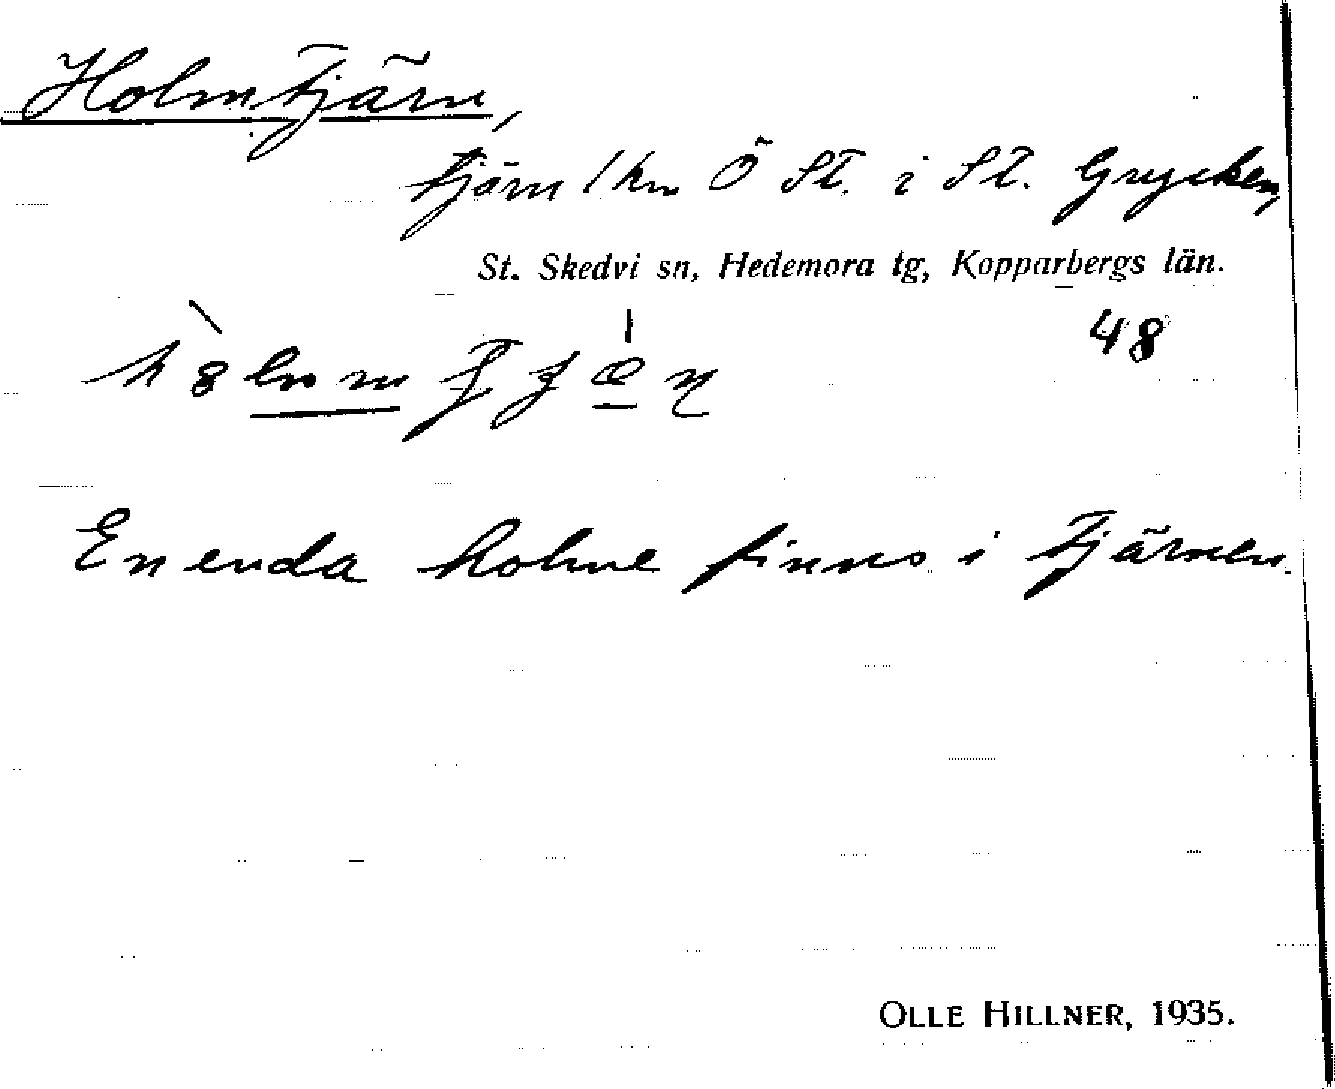 Holmtjärn,
tjärn 1 km Ö St. i St. Grycken,
St. Skedvi sn, Hedemora tg, Kopparbergs län.
48
En enda holme finns i tjärnen.
OLLE HILLNER, 1935.